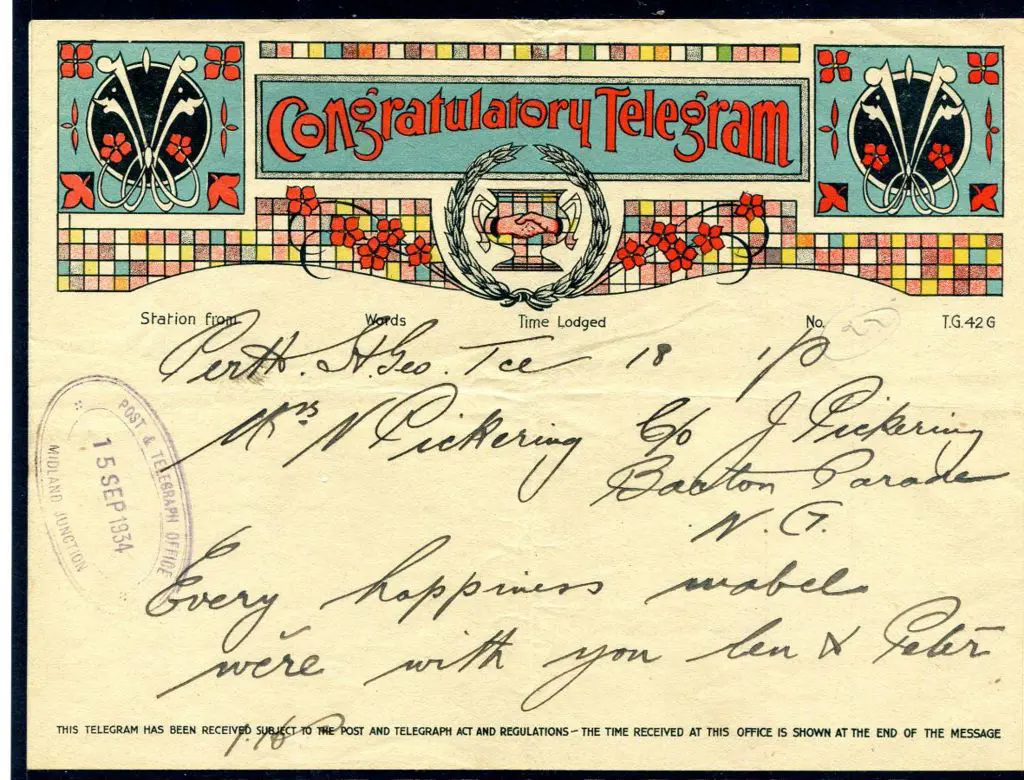 Congratulatory Telegram
Station from Words Time Lodged No. T.G.42G
Perth. St. Geo. Tce 18 1/P
Mrs N Pickering C/o J Pickering
Parade
N. G.
Every happiness mabel
were with you len & Peter
POST & TELEGRAPH OFFICE
15 SEP 1934
MIDLAND JUNCTION
THIS TELEGRAM HAS BEEN RECEIVED SUBJECT TO THE POST AND TELEGRAPH ACT AND REGULATIONS – THE TIME RECEIVED AT THIS OFFICE IS SHOWN AT THE END OF THE MESSAGE